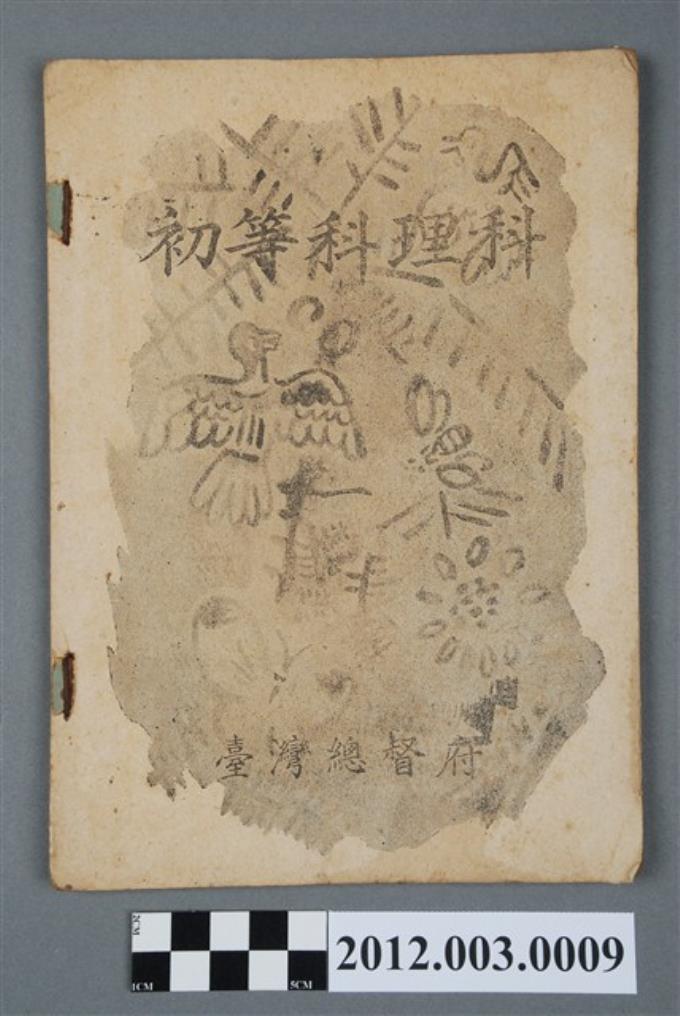 初等科理科
臺灣總督府
2CM
1CM
5CM
2012.003.0009